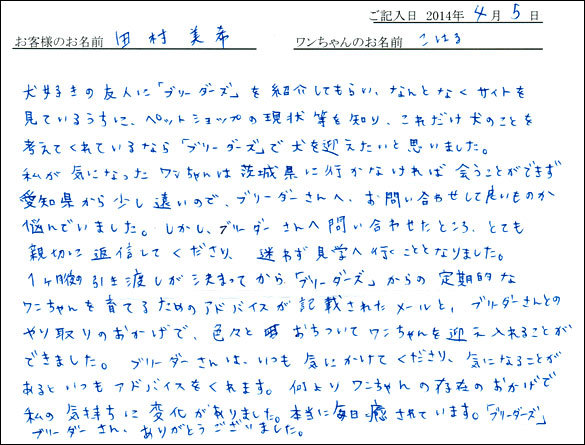 ご記入日 2014年 4月 5日
お客様のお名前 田村美希 ワンちゃんのお名前 こはる
犬好きの友人に「ブリーダーズ」を紹介してもらい、なんとなくサイトを
見ているうちに、ペットショップの現状等を知り、これだけ犬のことを
考えてくれているなら「ブリーダーズ」で犬を迎えたいと思いました。
私が気になったワンちゃんは茨城県に行かなければ会うことができず
愛知県から少し遠いので、ブリーダーさんへ、お問い合わせして良いものか
悩んでいました。しかし、ブリーダーさんへ問い合わせたところ、とても
親切に返信してくださり、迷わず見学へ行くこととなりました。
1ヶ月後の引き渡しが決まってから「ブリーダーズ」からの定期的な
ワンちゃんを育てるためのアドバイスが記載されたメールと、ブリーダーさんとの
やり取りのおかげで、色々と おちついてワンちゃんを迎え入れることが
できました。ブリーダーさんは、いつも気にかけてくださり、気になることが
あるといつもアドバイスをくれます。何よりワンちゃんの存在のおかげで
私の気持ちに変化がありました。本当に毎日癒されています。「ブリーダーズ」
ブリーダーさん、ありがとうございました。